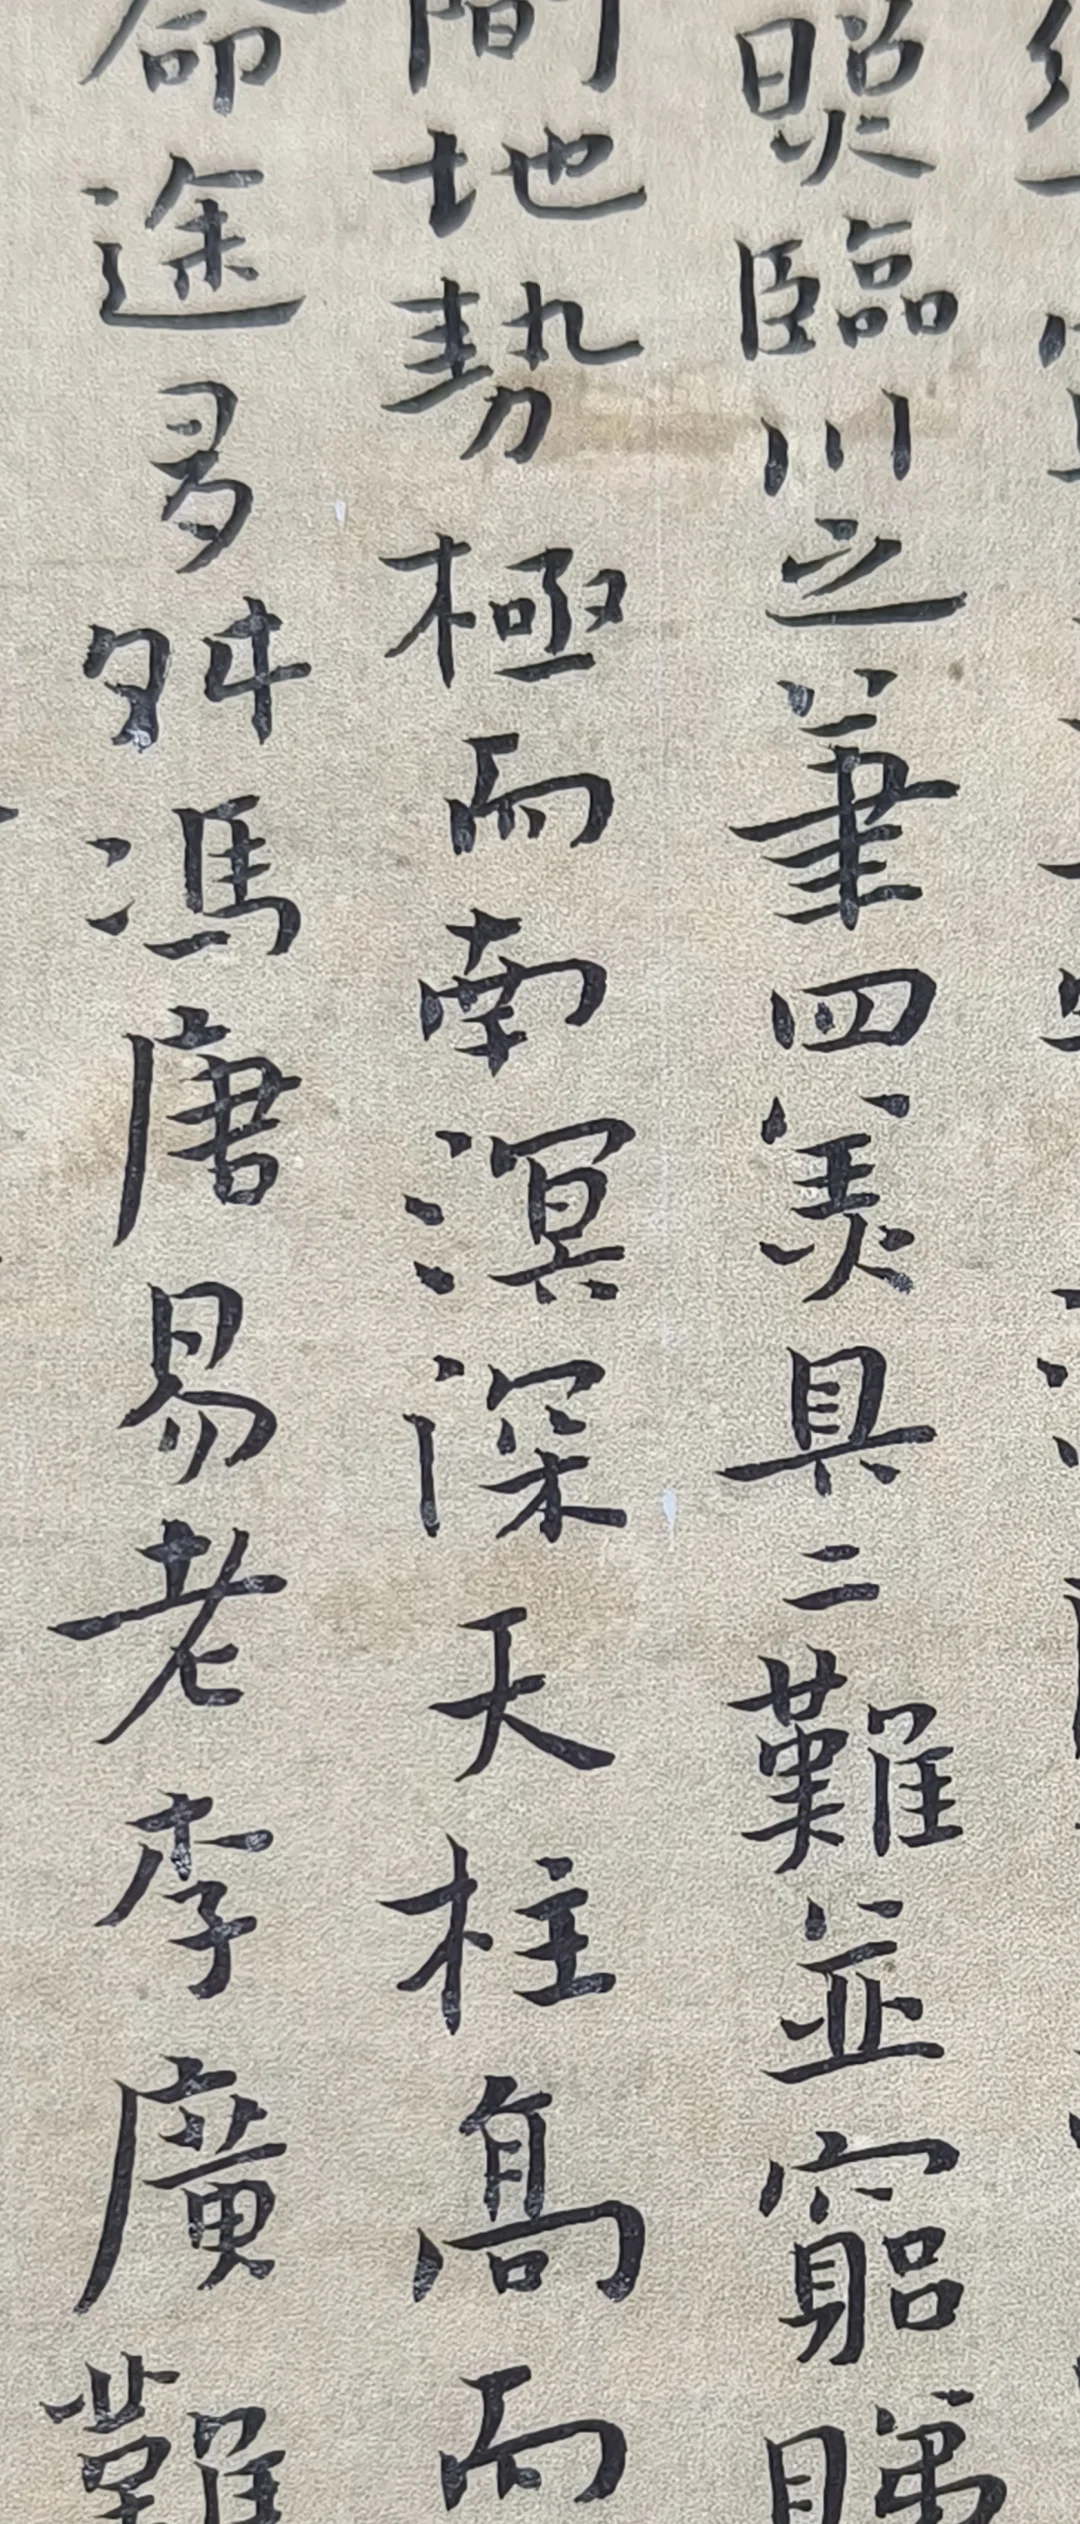 照臨川之筆四美具二難並窮睇
間地勢極而南溟深天柱高而
命途多舛馮唐易老李廣難